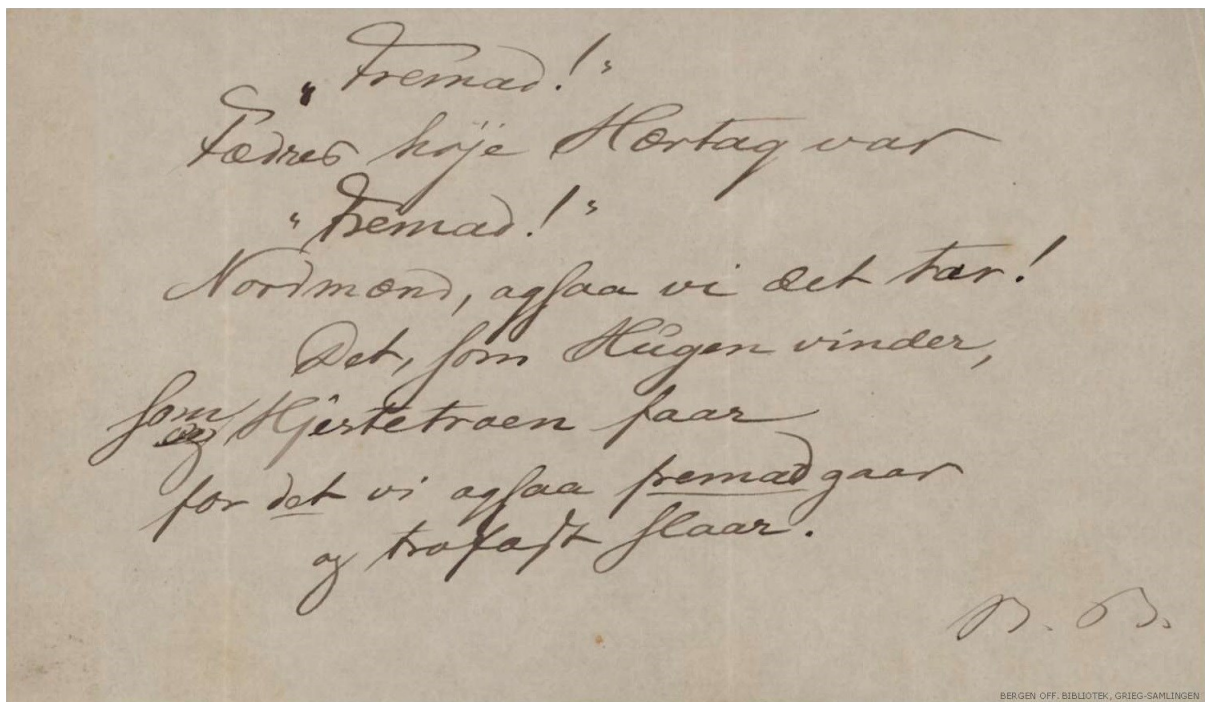 "Fremad!"
Fædres höje Hærtag var
"Fremad!"
Nordmænd, ogsaa vi det tar!
Det, som Hugen vinder,
som Hjertetroen faar
for det vi ogsaa fremad gaar
og trofast slaar.
B. B.
BERGEN OFF. BIBLIOTEK, GRIEG-SAMLINGEN